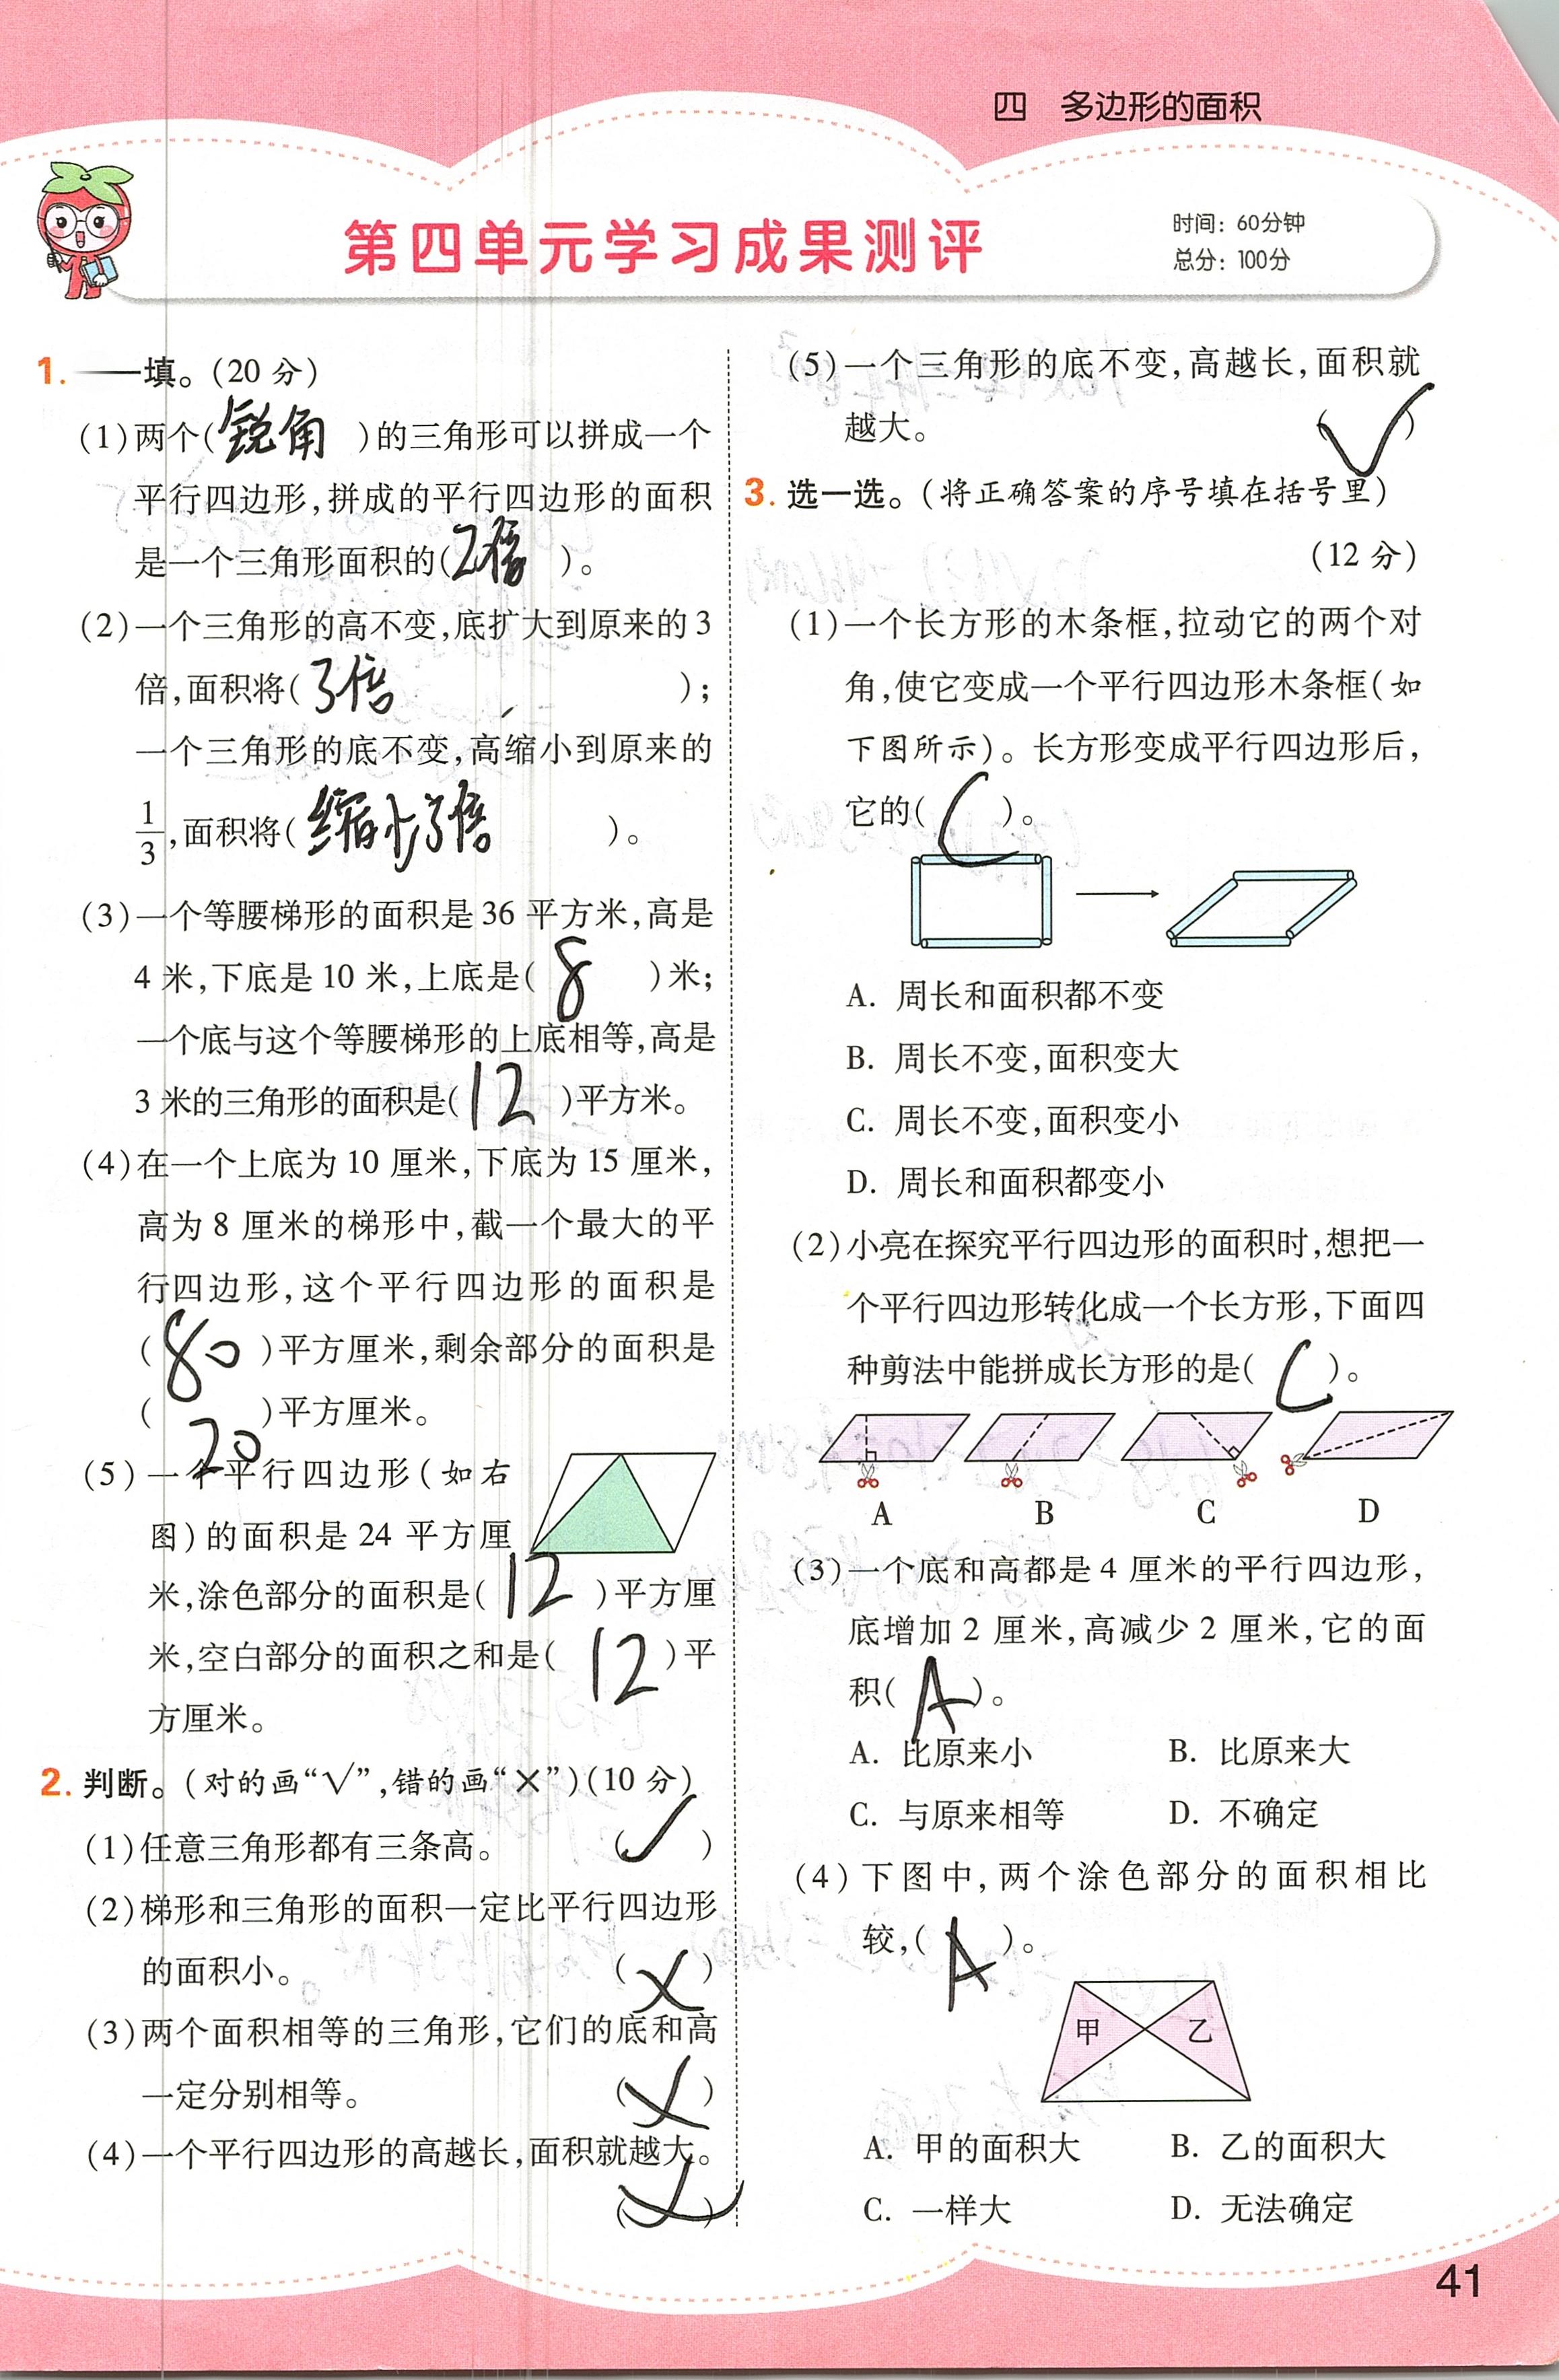 四 多边形的面积
第四单元学习成果测评
时间：60分钟
总分：100分
1. 一填。(20 分)
(1)两个(锐角)的三角形可以拼成一个
平行四边形,拼成的平行四边形的面积
是一个三角形面积的(2倍)。
(2)一个三角形的高不变,底扩大到原来的3
倍,面积将(3倍);
一个三角形的底不变,高缩小到原来的
1/3,面积将(缩小3倍)。
(3)一个等腰梯形的面积是36 平方米,高是
4 米,下底是 10 米,上底是(8)米;
一个底与这个等腰梯形的上底相等,高是
3 米的三角形的面积是(12)平方米。
(4)在一个上底为 10 厘米,下底为 15 厘米,
高为 8 厘米的梯形中,截一个最大的平
行四边形,这个平行四边形的面积是
(80)平方厘米,剩余部分的面积是
(20)平方厘米。
(5)一个平行四边形(如右
图)的面积是 24 平方厘
米,涂色部分的面积是(12)平方厘
米,空白部分的面积之和是(12)平
方厘米。
2. 判断。(对的画“√”,错的画“×”)(10 分)
(1)任意三角形都有三条高。 (✓)
(2)梯形和三角形的面积一定比平行四边形
的面积小。 (×)
(3)两个面积相等的三角形,它们的底和高
一定分别相等。 (×)
(4)一个平行四边形的高越长,面积就越大。
(×)
(5)一个三角形的底不变,高越长,面积就
越大。 (✓)
3. 选一选。(将正确答案的序号填在括号里)
(12 分)
(1)一个长方形的木条框,拉动它的两个对
角,使它变成一个平行四边形木条框(如
下图所示)。长方形变成平行四边形后,
它的(C)。
A. 周长和面积都不变
B. 周长不变,面积变大
C. 周长不变,面积变小
D. 周长和面积都变小
(2)小亮在探究平行四边形的面积时,想把一
个平行四边形转化成一个长方形,下面四
种剪法中能拼成长方形的是(C)。
A B C D
(3)一个底和高都是 4 厘米的平行四边形,
底增加 2 厘米,高减少 2 厘米,它的面
积(A)。
A. 比原来小 B. 比原来大
C. 与原来相等 D. 不确定
(4)下图中,两个涂色部分的面积相比
较,(A)。
甲 乙
A. 甲的面积大 B. 乙的面积大
C. 一样大 D. 无法确定
41